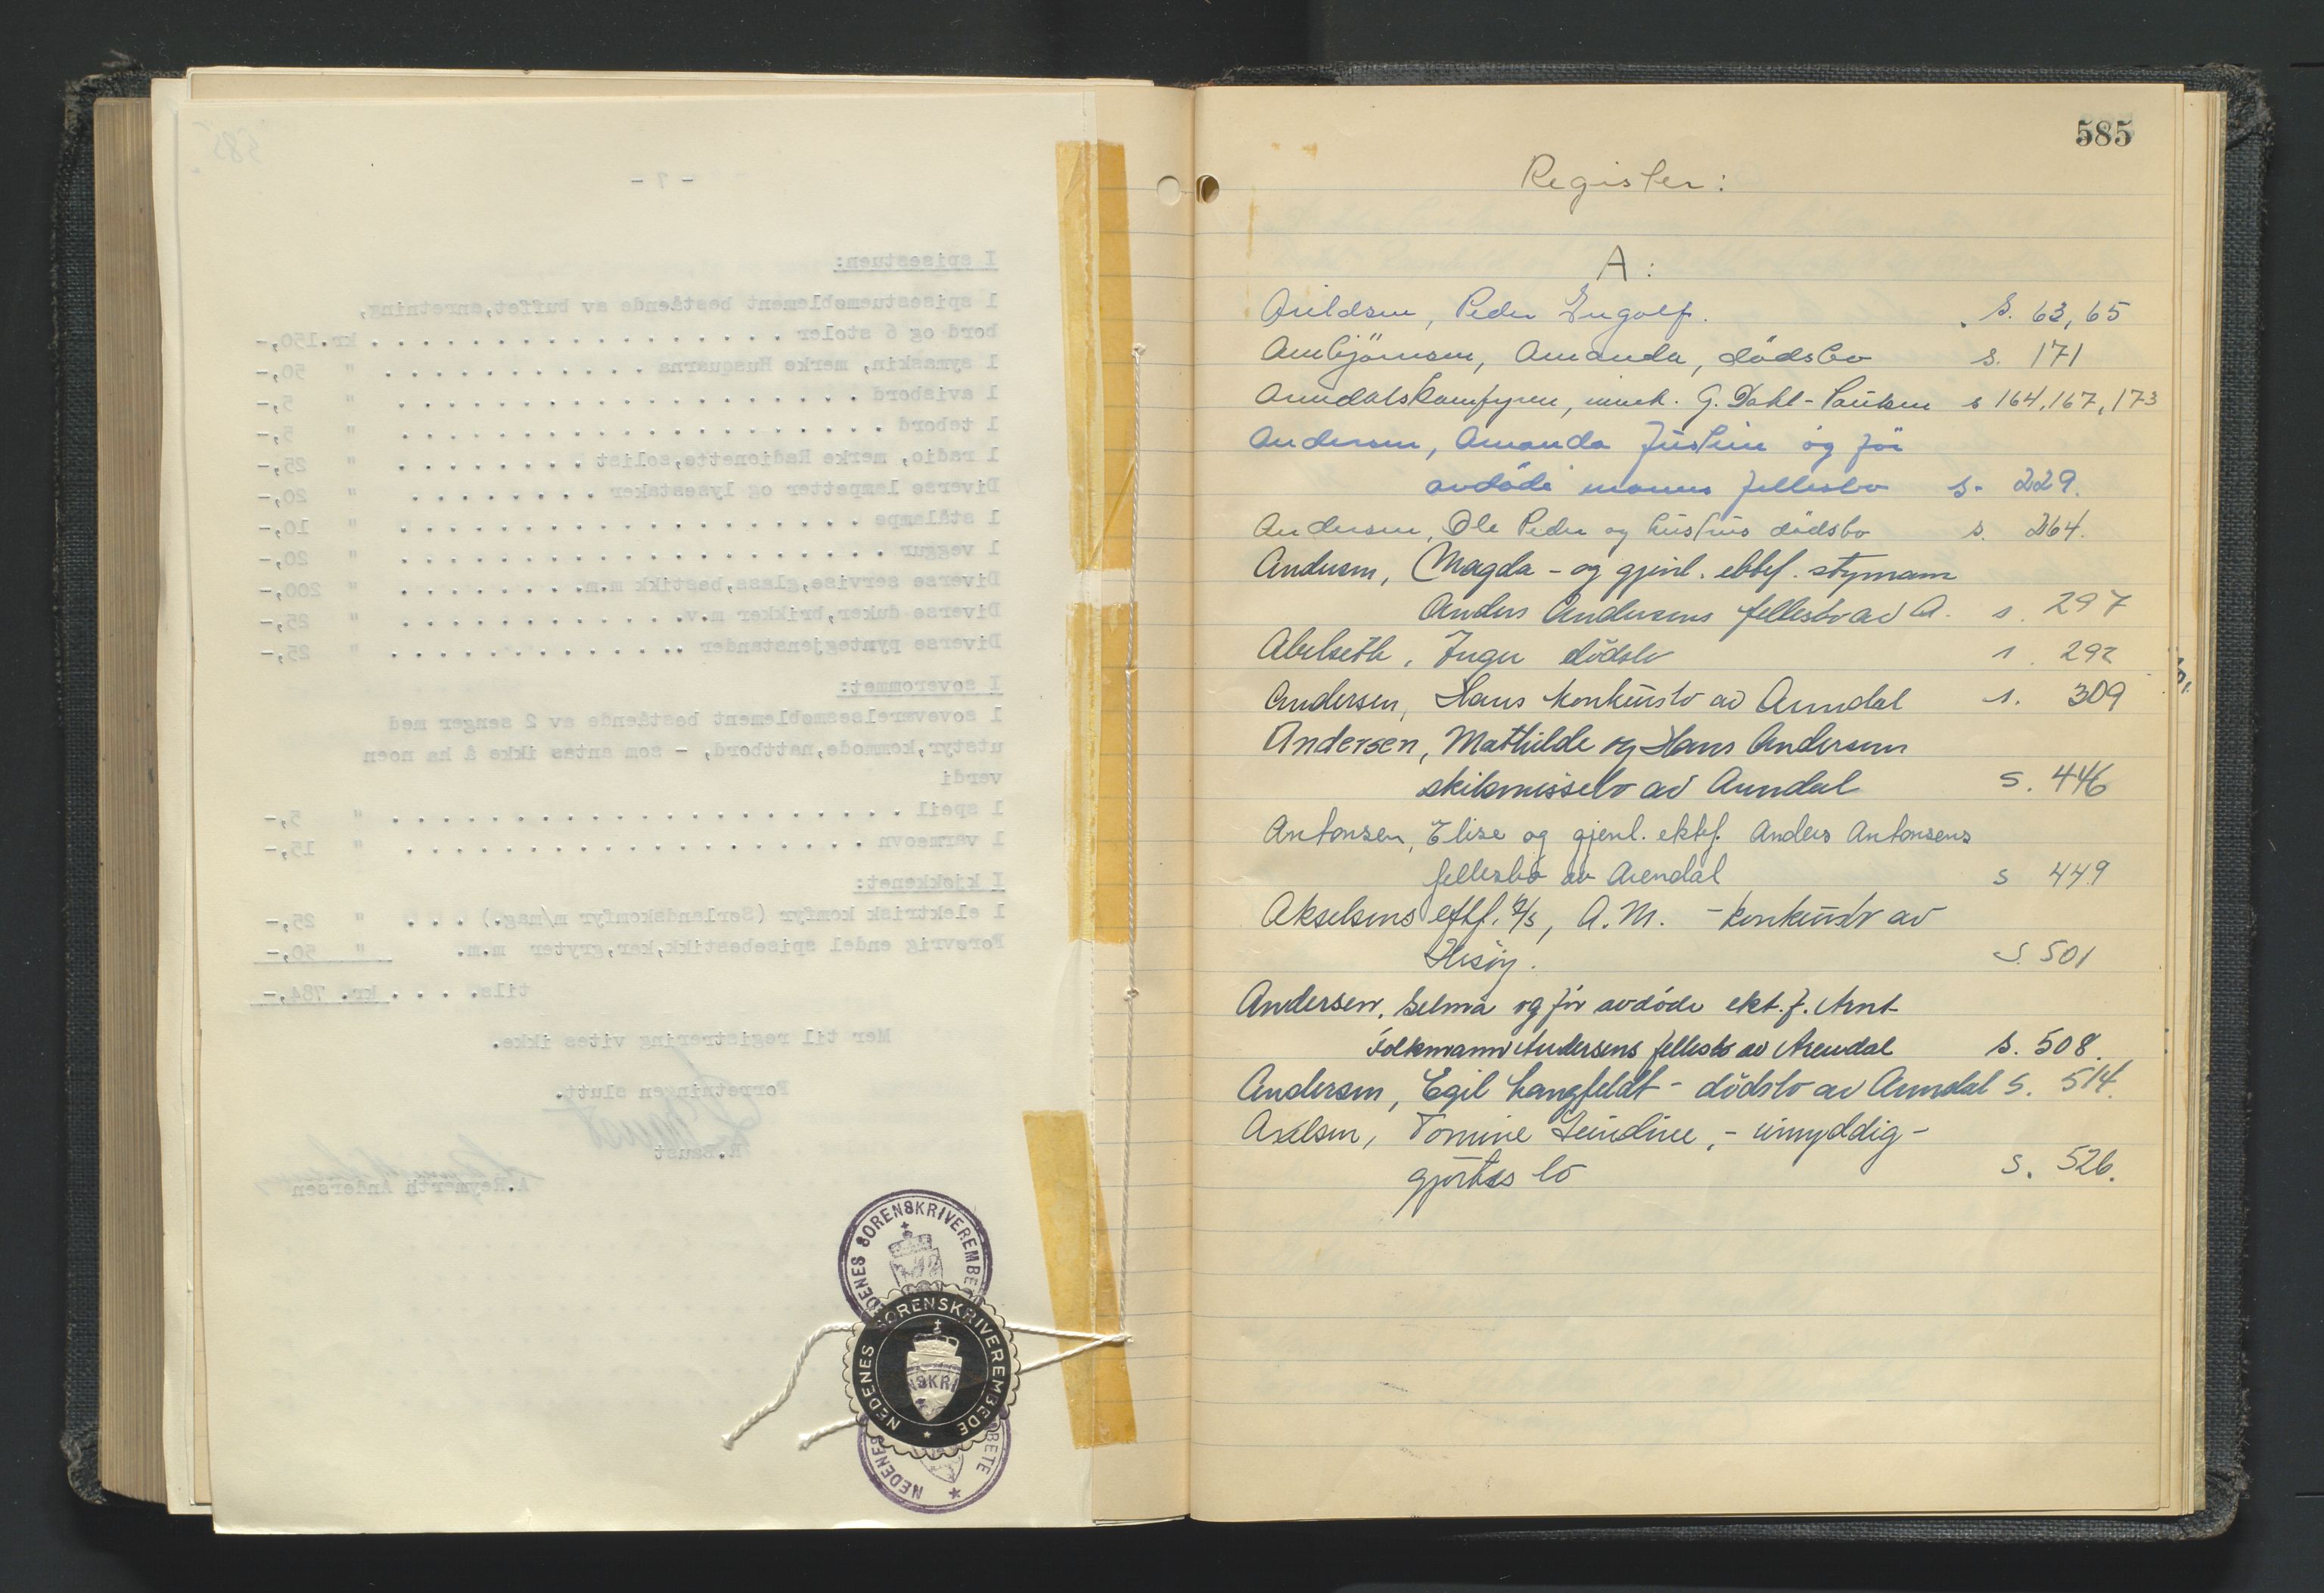 585
- 7 -
I spisestuen:
1 spisestuemøblement bestående av buffet,anretning,
bord og 6 stoler . . . . . . . . . . . . . . . . . kr.150,-
1 symaskin, merke Husquarna . . . . . . . . . . . " 50,-
1 avisbord . . . . . . . . . . . . . . . . . . . " 5,-
1 tebord . . . . . . . . . . . . . . . . . . . . " 5,-
1 radio, merke Radionette,solist . . . . . . . . " 25,-
Diverse lampetter og lysestaker . . . . . . . . " 20,-
1 stålampe . . . . . . . . . . . . . . . . . . . " 10,-
1 veggur . . . . . . . . . . . . . . . . . . . . " 20,-
Diverse servise,glass,bestikk m.m. . . . . . . . " 200,-
Diverse duker,brikker m.v. . . . . . . . . . . . " 25,-
Diverse pyntegjenstander . . . . . . . . . . . . " 25,-
I soverommet:
1 soveværelsesmøblement bestående av 2 senger med
utstyr,kommode,nattbord, - som antas ikke å ha noen
verdi
1 speil . . . . . . . . . . . . . . . . . . . . . " 5,-
1 varmeovn . . . . . . . . . . . . . . . . . . . " 15,-
I kjøkkenet:
1 elektrisk komfyr (Sørlandskomfyr m/mag.) . . . " 25,-
Forøvrig endel spisebestikk,kar,gryter m.m. " 50,-
tils. . . . . kr. 784,-
Mer til registrering vites ikke.
Forretningen slutt.
R.Saust
A.Reymerth Andersen
NEDENES SORENSKRIVEREMBETE
NEDENES SORENSKRIVEREMBEDE
NEDENES BETE
585
Register:
A:
Arildsen, Peder Ingolf. s. 63, 65
Arnbjörnsen, Amanda, dödsbo s. 171
Arendalskomfyren, innek. G. Dahl-Paulsen s 164, 167, 173
Andersen, Amanda Justine og før
avdöde manns fellesbo s. 229.
Andersen, Ole Peder og hustrus dödsbo s. 264.
Andersen, Magda - og gjenl. ektef. styrmann
Anders Andersens fellesbo av A. s. 297
Abelseth, Inger dödsbo s. 292
Andersen, Hans konkursbo av Arendal s. 309
Andersen, Mathilde og Hans Andersens
skilsmissebo av Arendal s. 446
Antonsen, Elise og gjenl. ektef. Anders Antonsens
fellesbo av Arendal s 449
Akselsens eftf. A/S, A.M. - konkursbo av
Hisøy. s. 501
Andersen, Selma og før avdöde ekt.f. Arnt
Folkmann Andersens fellesbo av Arendal s. 508.
Andersen, Egil Langfeldt - dödsbo av Arendal s. 514.
Axelsen, Tomine - umyddig-
gjortes bo s. 526.